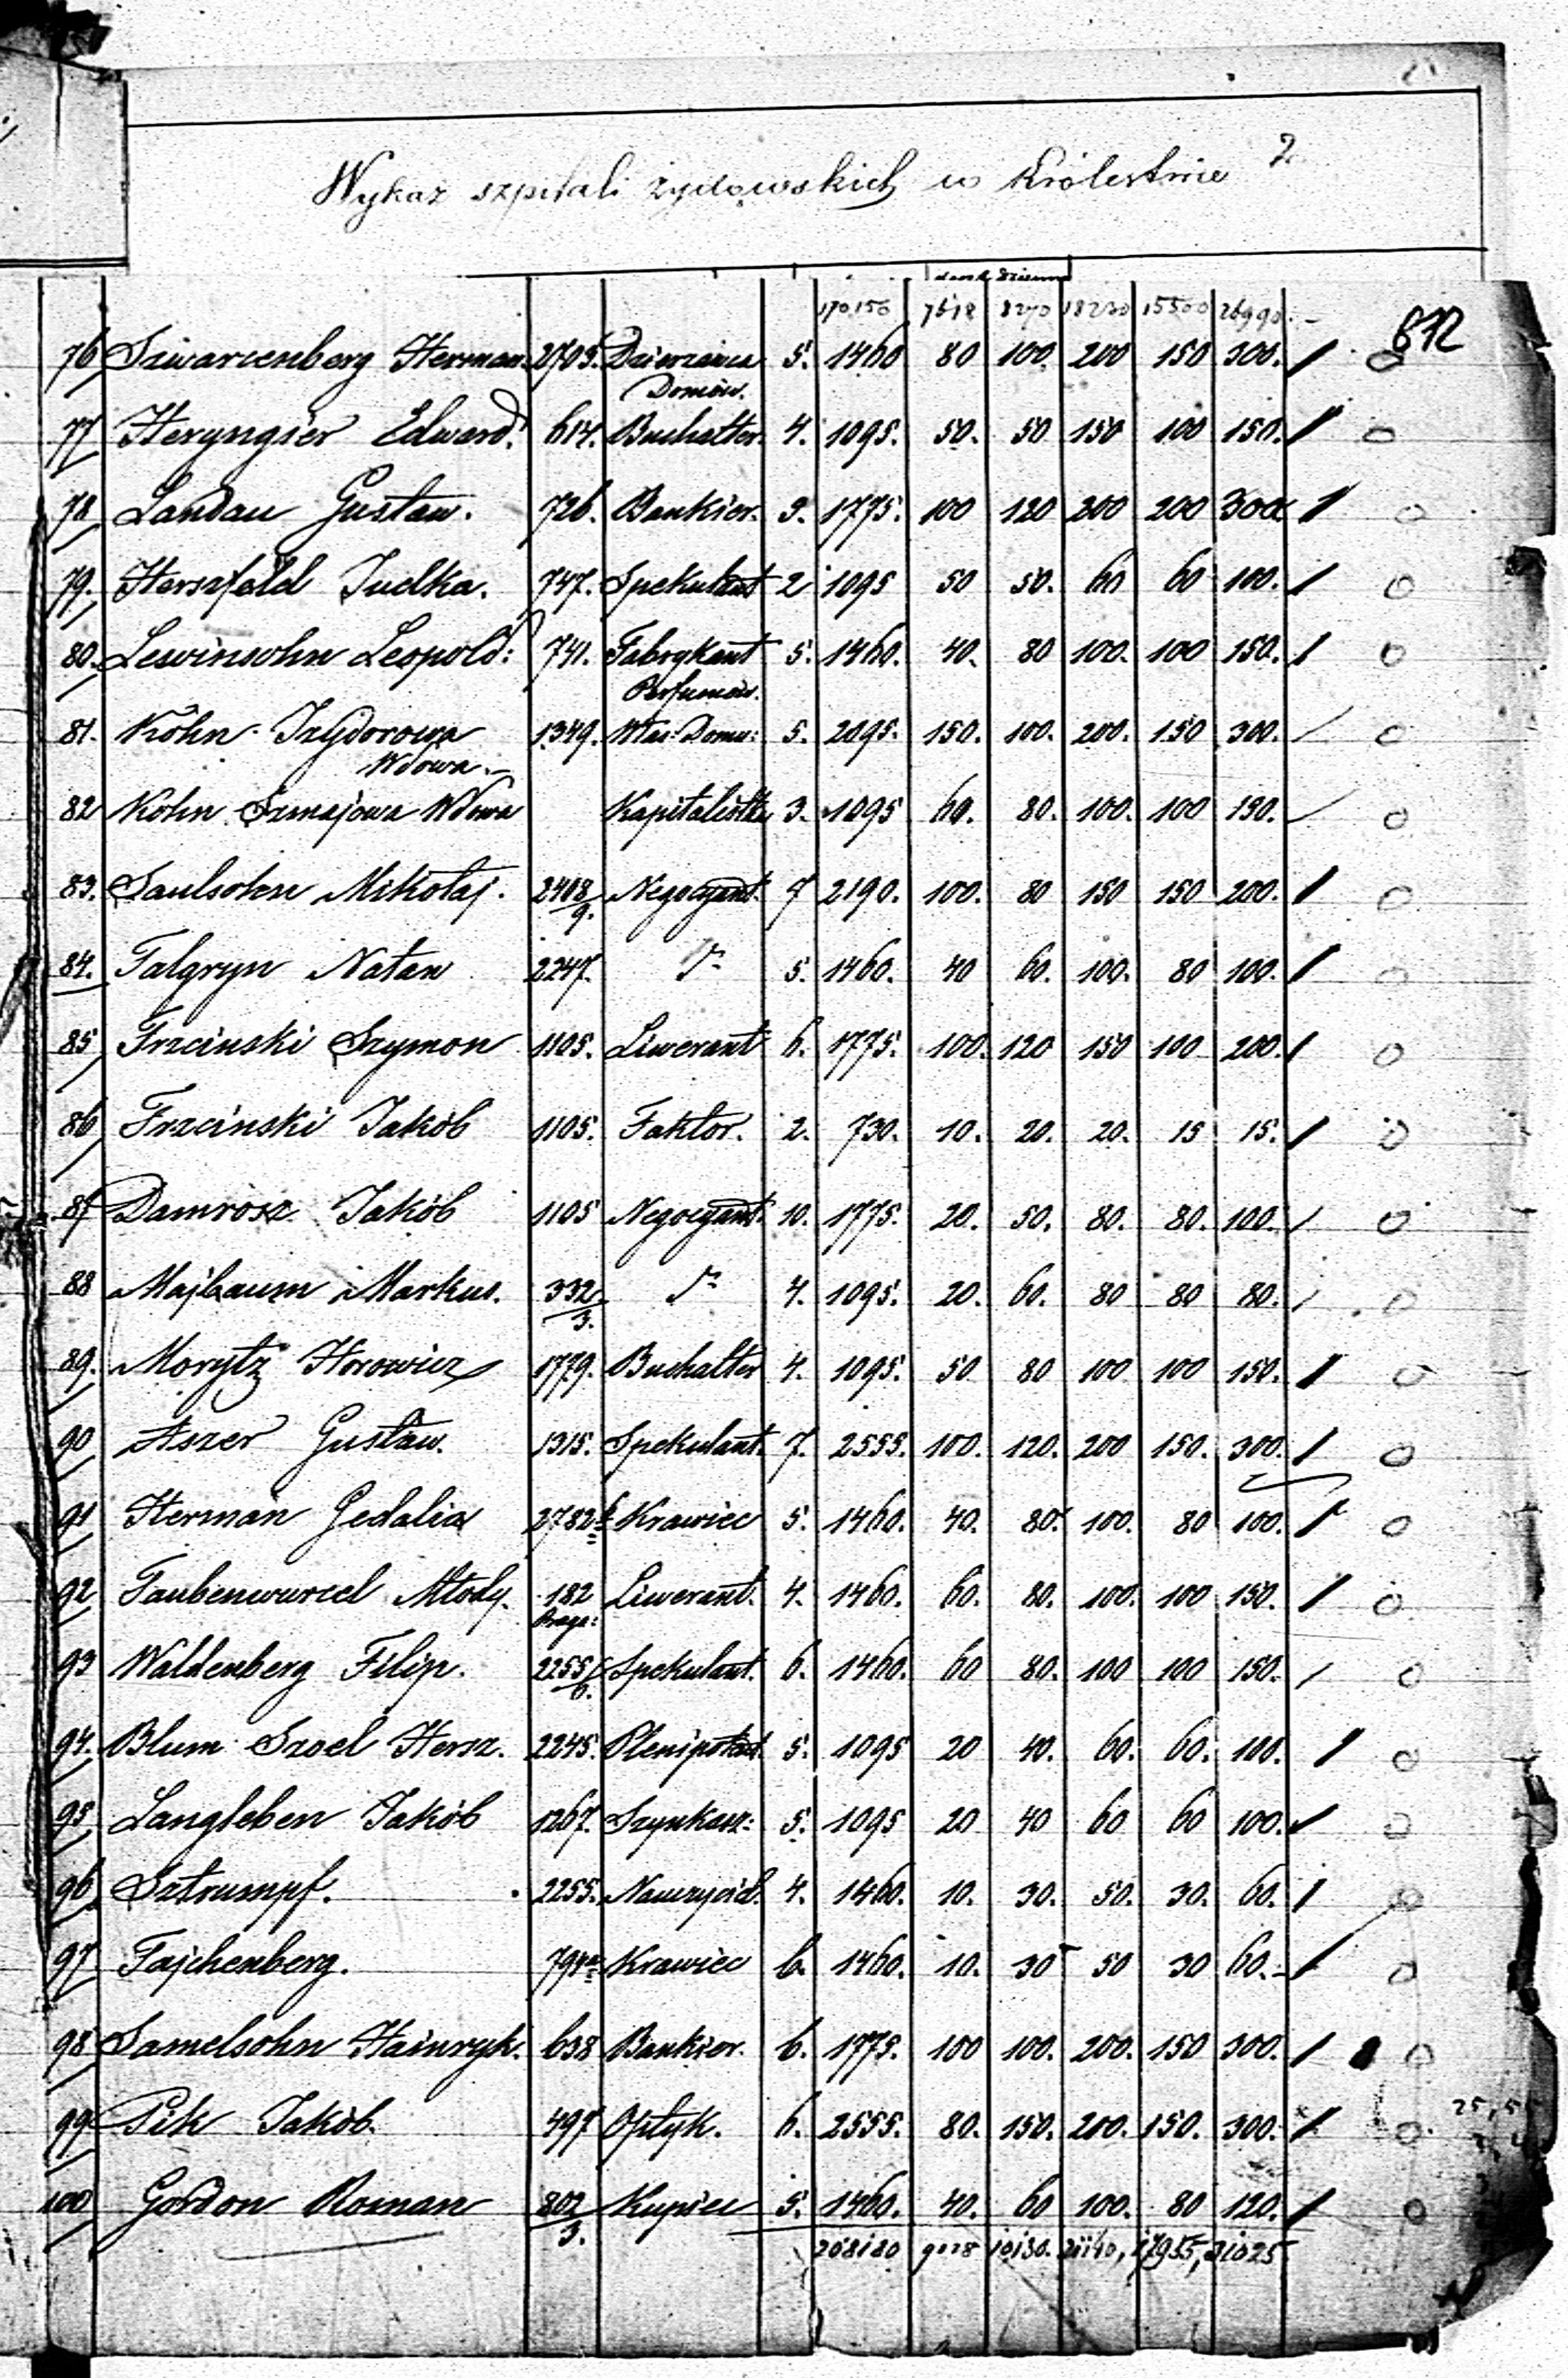 Wykaz szpitali żydowskich w Królestwie 2
170150 7618 8270 18230 15500 26990
76 Szwarcenberg Herman. 2705. Dzierżawca 5. 1460 80 100. 200 150 300.
Domów.
77 Heryngier Edward. 614. Buchalter. 4. 1095. 50. 50 150 100 150.
78 Landau Gustaw. 726. Bankier. 3. 1775. 100 120 200 200 300
79. Herszfeld Judka. 747. Spekulant 2 1095 50 50. 60 60 100.
80. Leswinsohn Leopold: 741. Fabrykant 5. 1460. 40. 80 100. 100 150.
Perfumów.
81. Köhn Izydorowa 1349. Właś: Domu: 5. 2095. 150. 100. 200. 150 300.
Wdowa.
82 Kohn Szmajowa Wdowa Kapitalistka 3. 1095 60. 80. 100. 100 150.
83. Saulsohn Mikołaj. 2408/9. Negocyant. 7 2190. 100. 80 150 150 200.
84. Talgryn Natan 2247. 5. 1460. 40 60. 100. 80 100.
85 Trzcinski Szymon 1105. Liwerant 6. 1775. 100. 120 150 100 200.
86 Trzcinski Jakób 1105. Faktor. 2. 730. 10. 20. 20. 15 15.
87 Damrosz Jakób 1105 Negocyant. 10. 1775. 20. 50. 80. 80. 100.
88 Majbaum Markus. 332/3. 4. 1095. 20. 60. 80 80 80.
89. Morytz Horowicz 1779. Buchalter 4. 1095. 50 80 100 100 150.
90 Aszer Gustaw. 1315. Spekulant. 7. 2555. 100. 120. 200 150. 300.
91 Herman Gedalia 2782 Krawiec 5. 1460. 40. 80. 100. 80 100.
92 Taubenwurcel Młody. 182 Liwerant. 4. 1460. 60. 80. 100. 100 150.
Praga:
93 Waldenberg Filip. 2255/6. Spekulant. 6. 1460. 60 80. 100 100 150.
94. Blum Szoel Hersz. 2245. Plenipotent. 5. 1095 20 40. 60. 60. 100.
95 Langleben Jakób 1267. Szynkarz: 5. 1095 20 40 60 60 100.
96 Sztrumpf. 2255. Nauczyciel. 4. 1460. 10. 30. 50. 30. 60.
97 Tajchenberg. Krawiec 6. 1460. 10. 30 50 30 60.
98 Samelsohn Hainryk. 638 Bankier. 6. 1775. 100 100. 200. 150 300.
99 Pik Jakób. 497 Optyk. 6. 2555. 80. 150. 200. 150. 300.
100 Gordon Roman 802/3. Kupiec 5. 1460. 40. 60 100. 80 120.
208180 10130. 17955, 31025